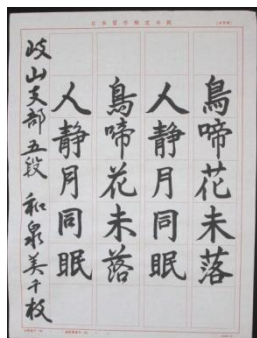 鳥啼花未落
人靜月同眠
鳥啼花未落
人靜月同眠
岐山支部 五段 和泉美千枝